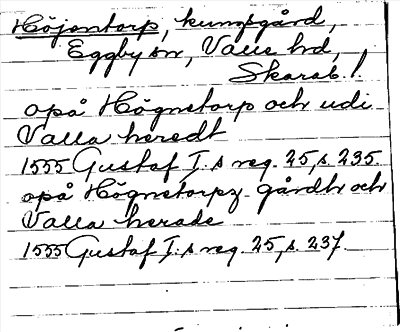 Höjentorp, kungsgård,
Eggby sn, Valle hd,
Skarab. l.
opå Högnetorp och udi
Valla heredt
1555 Gustaf I:s reg. 25, s. 235.
opå Högnetorpz gårdh och
Valla herade
1555 Gustaf I:s reg. 25, s. 237.